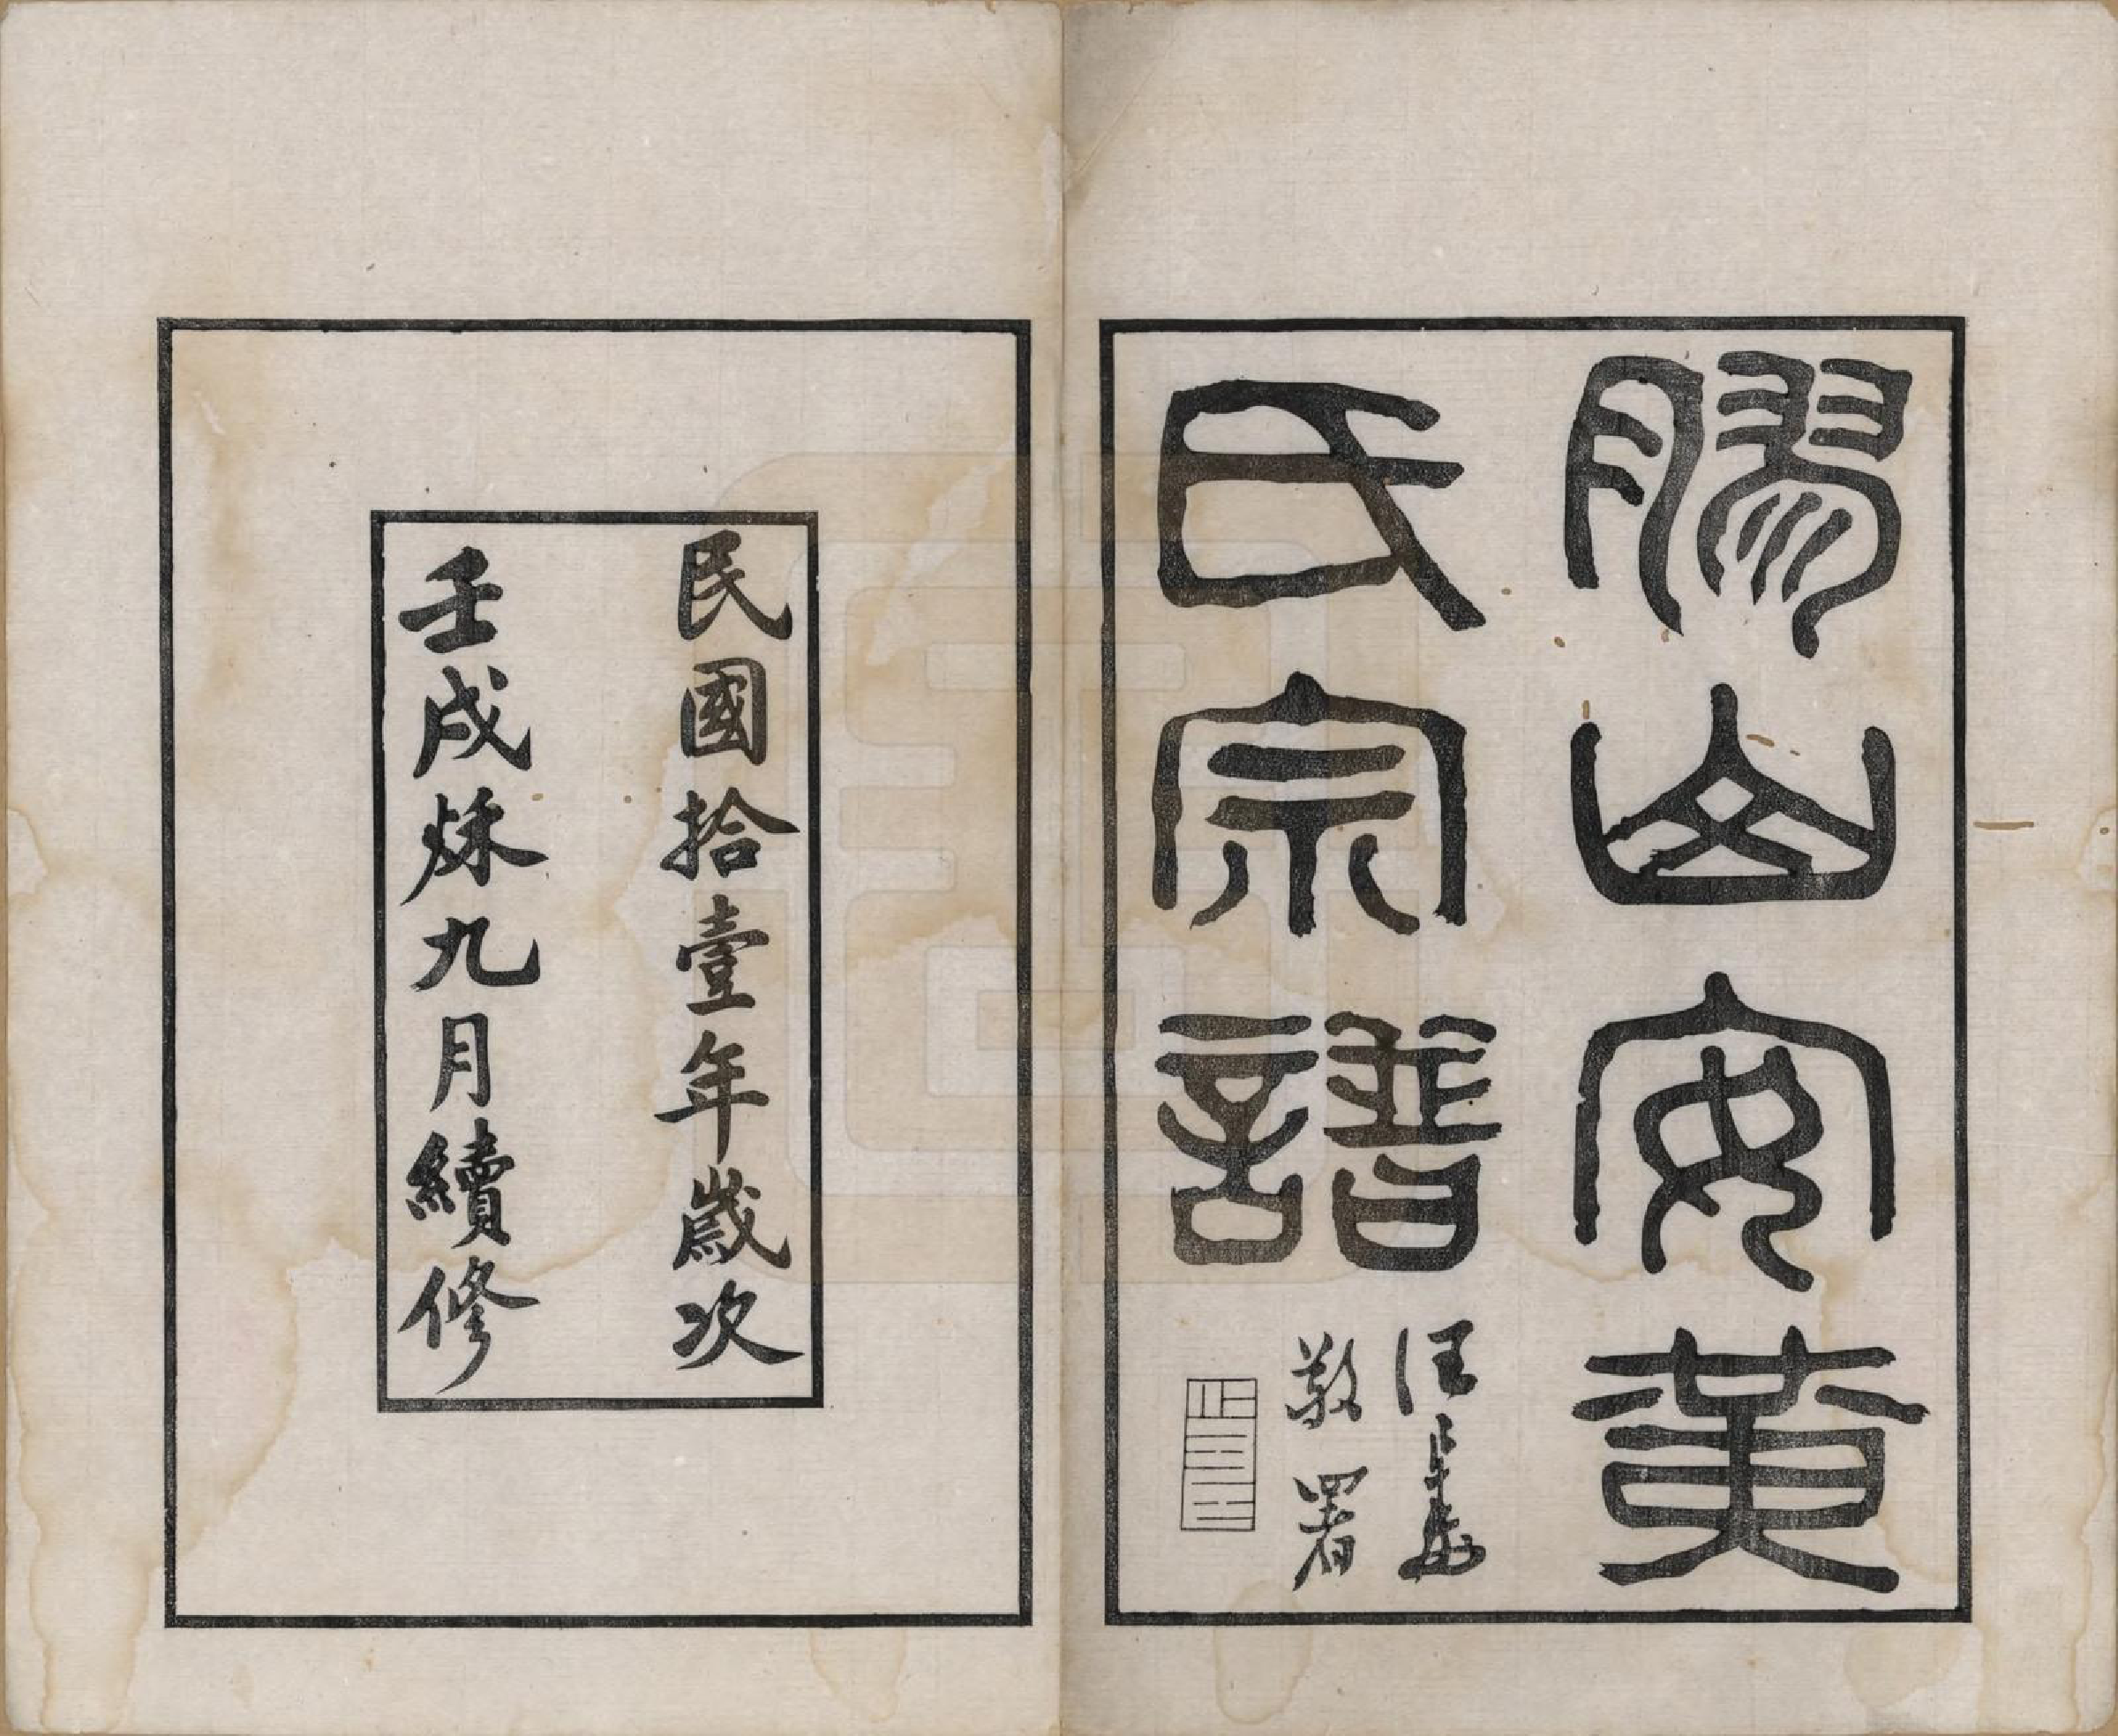 膠山安黃
氏宗譜
汪
敬署
民國拾壹年歲次
壬戌秌九月續修